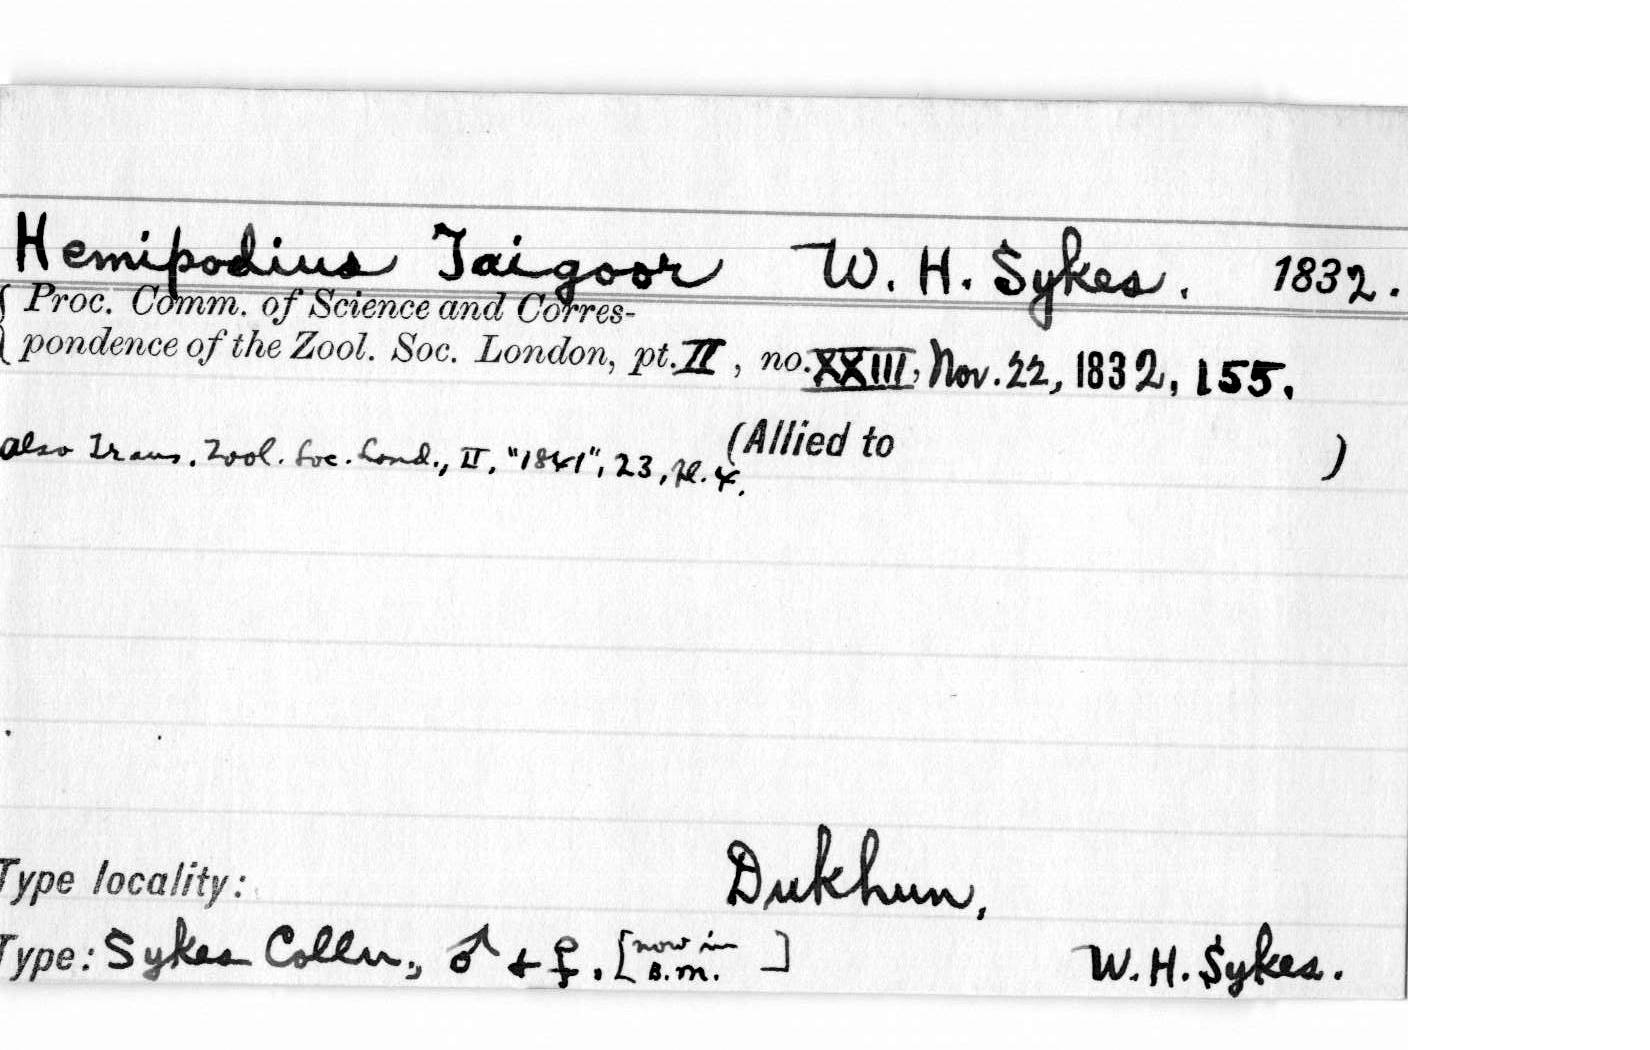 Hemipodius Taigoor W. H. Sykes. 1832.
Proc. Comm. of Science and Corres-
pondence of the Zool. Soc. London, pt. II, no. XXIII, Nov. 22, 1832, 155.
(Allied to )
also Trans. Zool. Soc. Lond., II, "1841", 23, pl. 4.
Type locality: Dukhun,
Type: Sykes Colln., ♂ + ♀. [now in B.M. ] W. H. Sykes.